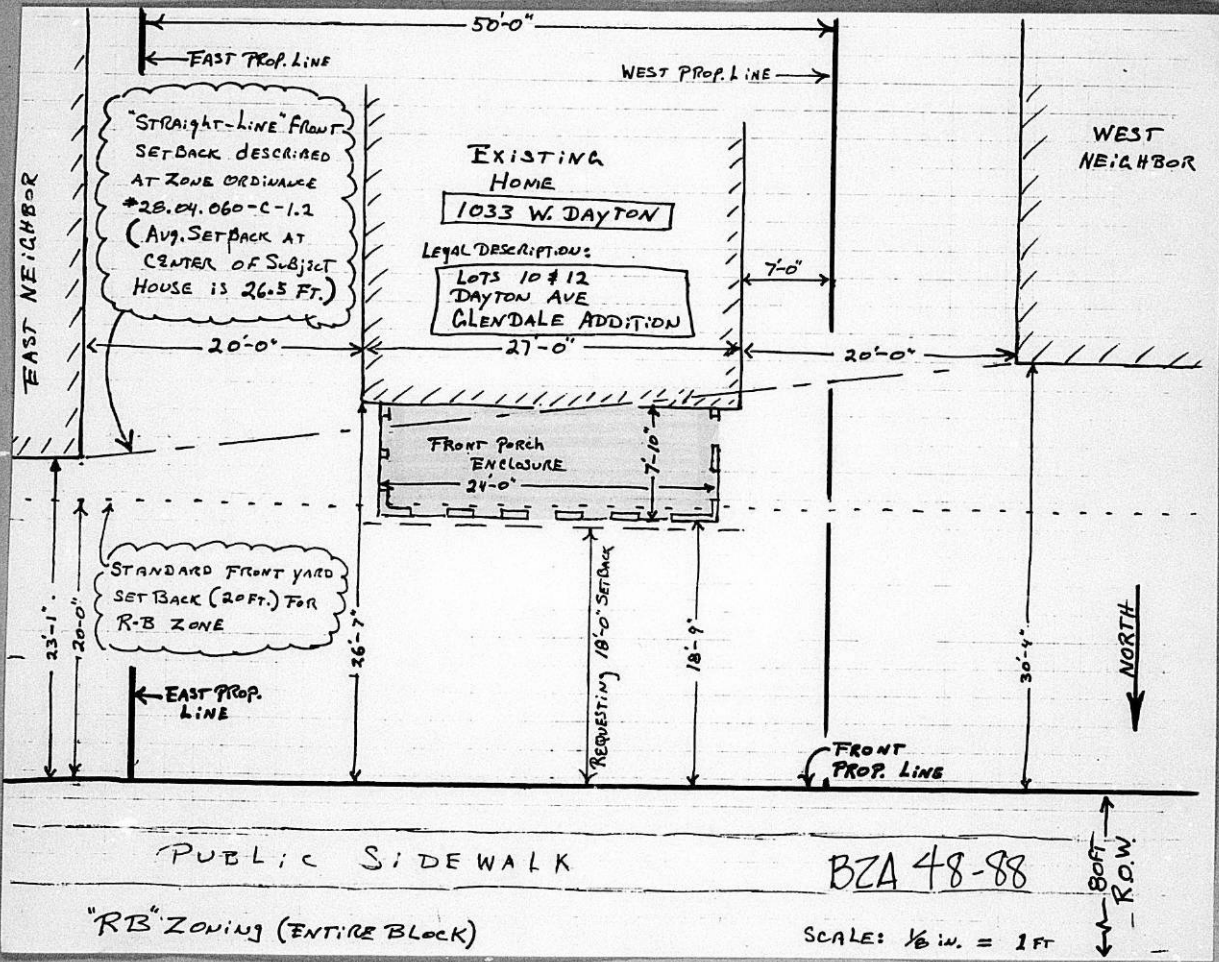 50'-0"
EAST PROP. LINE
WEST PROP. LINE
"STRAIGHT-LINE" FRONT
SETBACK DESCRIBED
AT ZONE ORDINANCE
#28.04.060-C-1.2
(AVG. SETBACK AT
CENTER OF SUBJECT
HOUSE IS 26.5 FT.)
EAST NEIGHBOR
EXISTING
HOME
1033 W. DAYTON
LEGAL DESCRIPTION:
LOTS 10 & 12
DAYTON AVE
GLENDALE ADDITION
WEST
NEIGHBOR
7'-0"
20'-0"
27'-0"
20'-0"
FRONT PORCH
ENCLOSURE
24'-0"
7'-10"
STANDARD FRONT YARD
SET BACK (20 FT.) FOR
R-B ZONE
23'-1"
20'-0"
EAST PROP.
LINE
26'-7"
REQUESTING 18'-0" SETBACK
18'-9"
30'-4"
NORTH
FRONT
PROP. LINE
PUBLIC SIDEWALK
BZA 48-88
80FT
R.O.W.
"RB" ZONING (ENTIRE BLOCK)
SCALE: 1/8 IN. = 1 FT